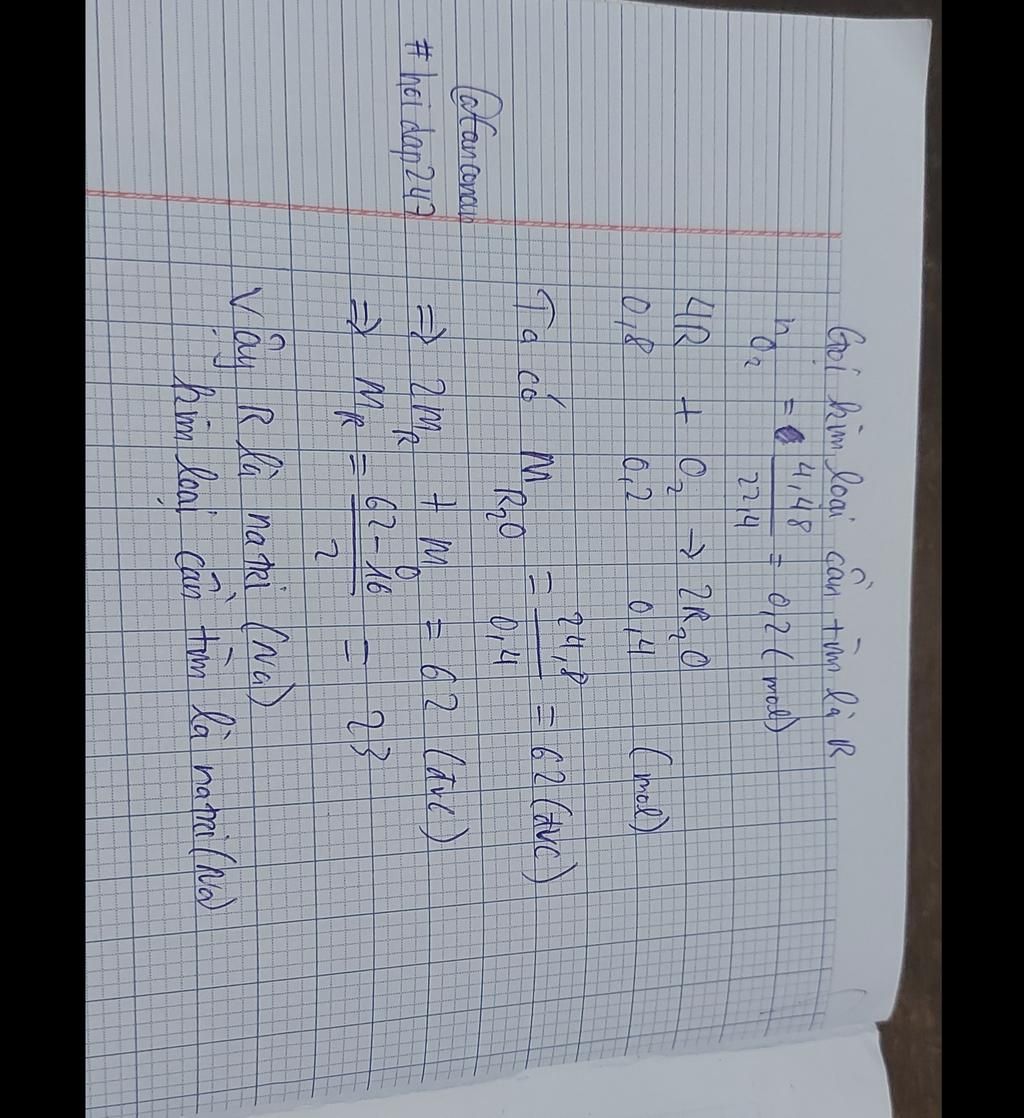 Gọi kim loại cần tìm là R
nO₂ = 4,48/22,4 = 0,2 (mol)
4R + O₂ → 2R₂O
0,8 0,2 0,4 (mol)
Ta có M R₂O = 24,8/0,4 = 62 (đvC)
⇒ 2M R + M O = 62 (đvC)
⇒ M R = (62 - 16)/2 = 23
Vậy R là natri (Na)
kim loại cần tìm là natri (Na)
#hoidap247